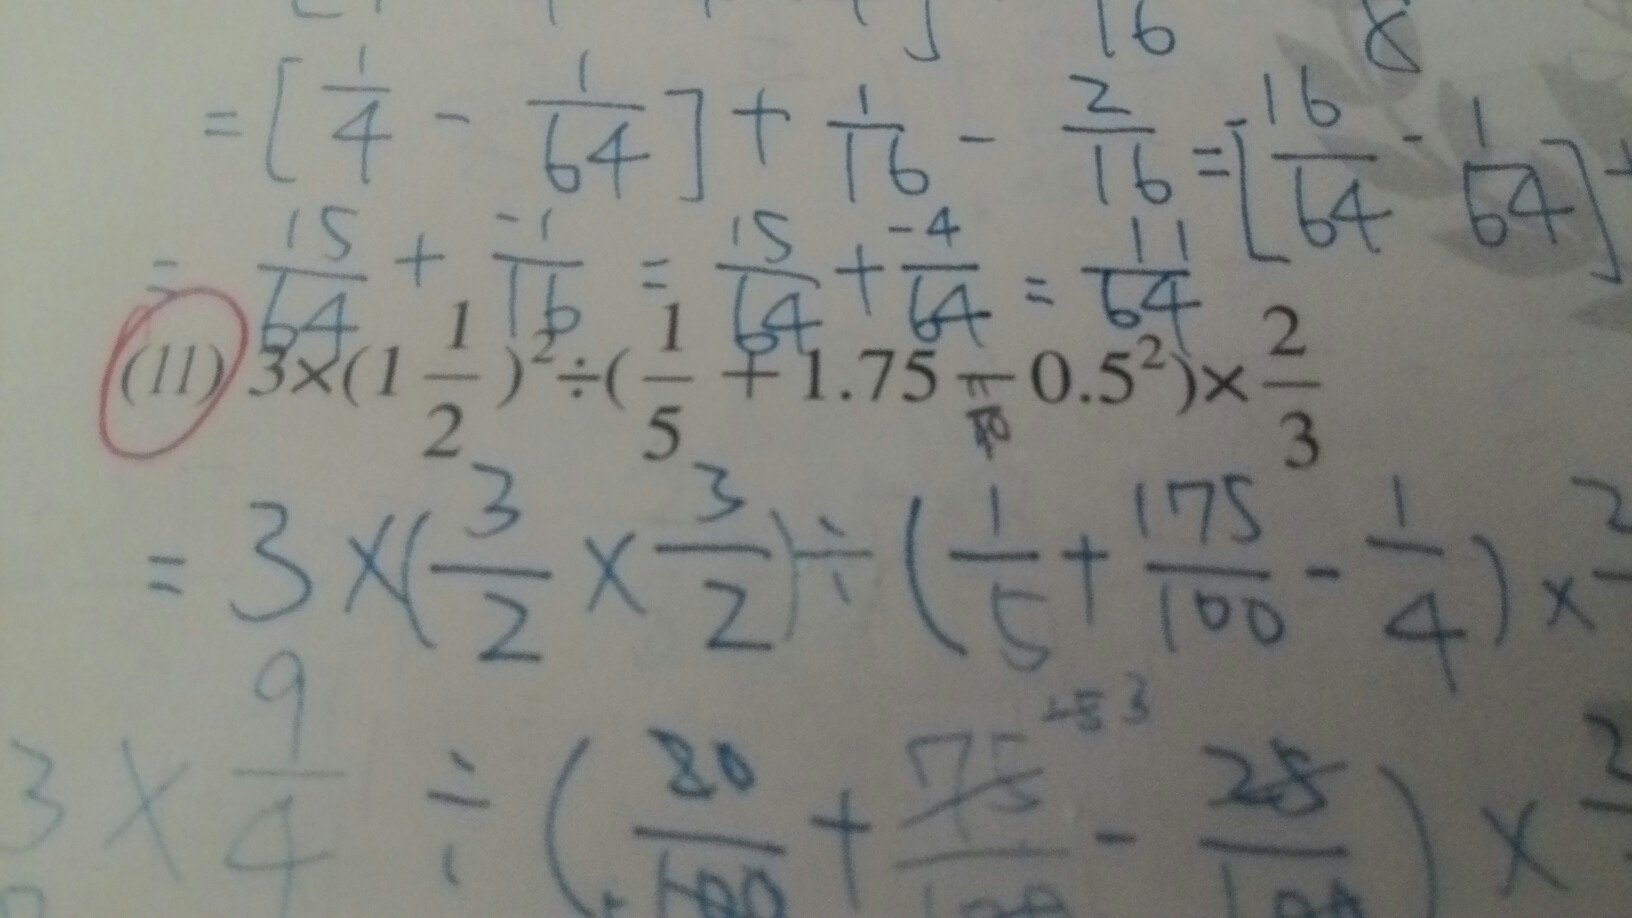 16 8
= [ 1/4 - 1/64 ] + 1/16 - 2/16 = [ 16/64 - 1/64 ] +
= 15/64 + -1/16 = 15/64 + -4/64 = 11/64
(11) 3×(1 1/2)²÷(1/5 + 1.75 - 0.5²)× 2/3
= 3 × (3/2 × 3/2) ÷ (1/5 + 175/100 - 1/4) × 2
3 × 9/4 ÷ (80/100 + 75/100 - 25/100) × 2